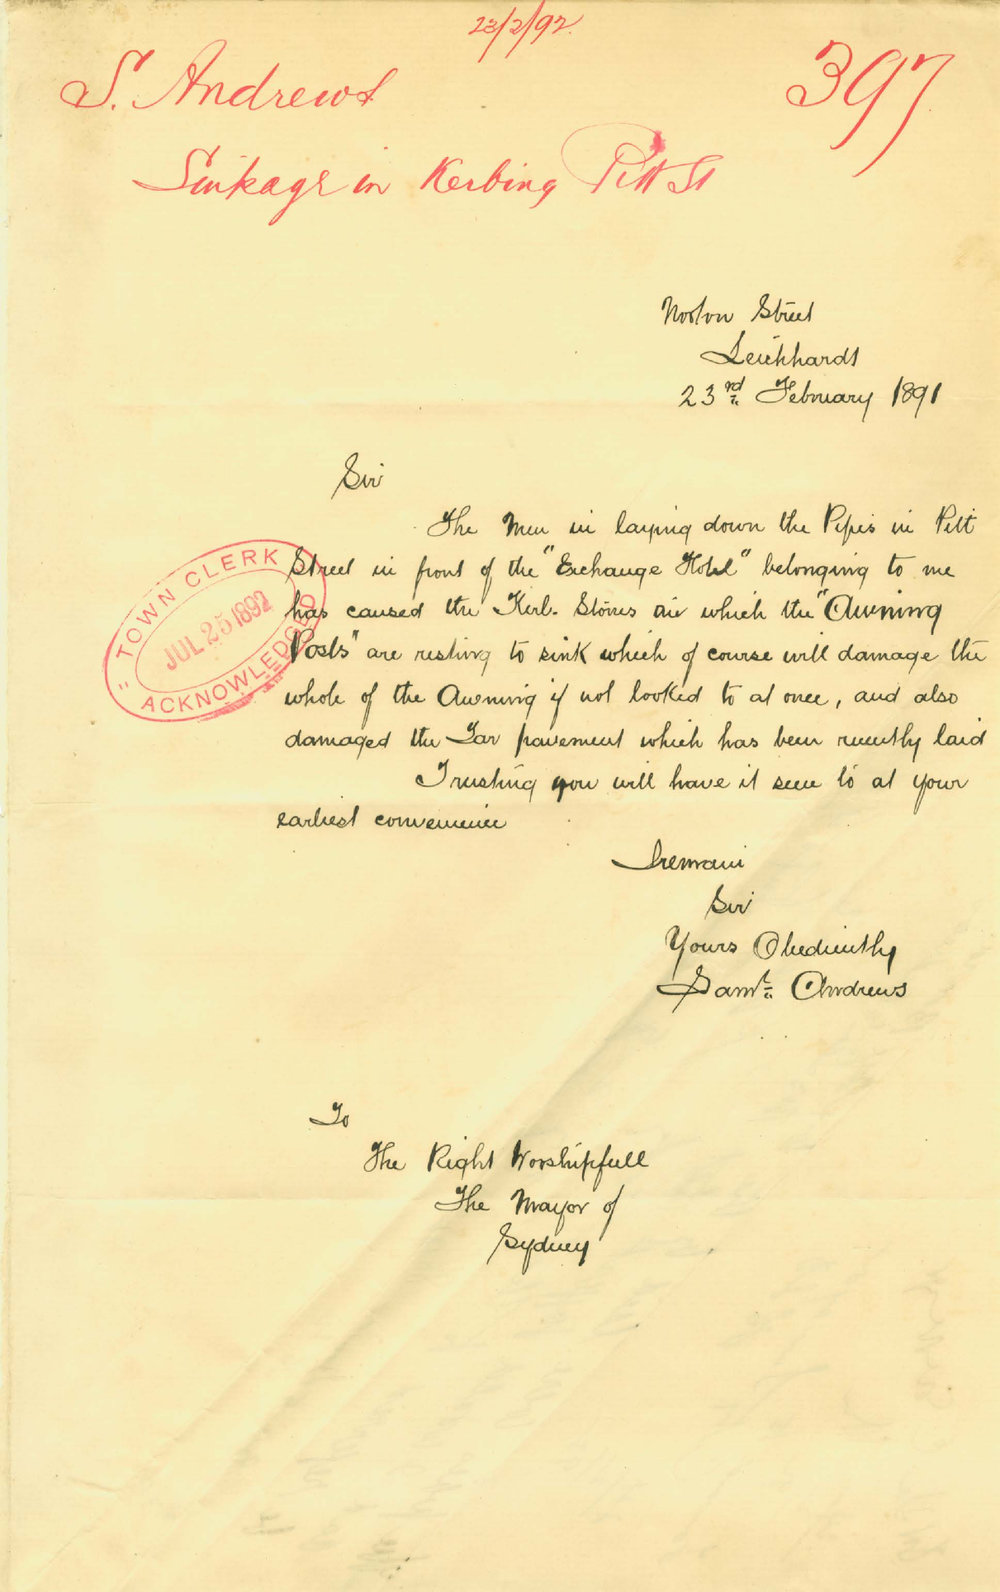 23/2/92.
S. Andrews
397
Sinkage in Kerbing Pitt St
Norton Street
Leichhardt
23rd February 1891
Sir
The Men in laying down the Pipes in Pitt
Street in front of the "Exchange Hotel" belonging to me
has caused the Kerb. Stones on which the "Awning
Posts" are resting to sink which of course will damage the
whole of the Awning if not looked to at once, and also
damaged the Tar pavement which has been recently laid
Trusting you will have it seen to at your
earliest convenience
"TOWN CLERK
JUL 25 1892
ACKNOWLEDGED
I remain
Sir
Yours Obediently
Saml. Andrews
To
The Right Worshipfull
The Mayor of
Sydney